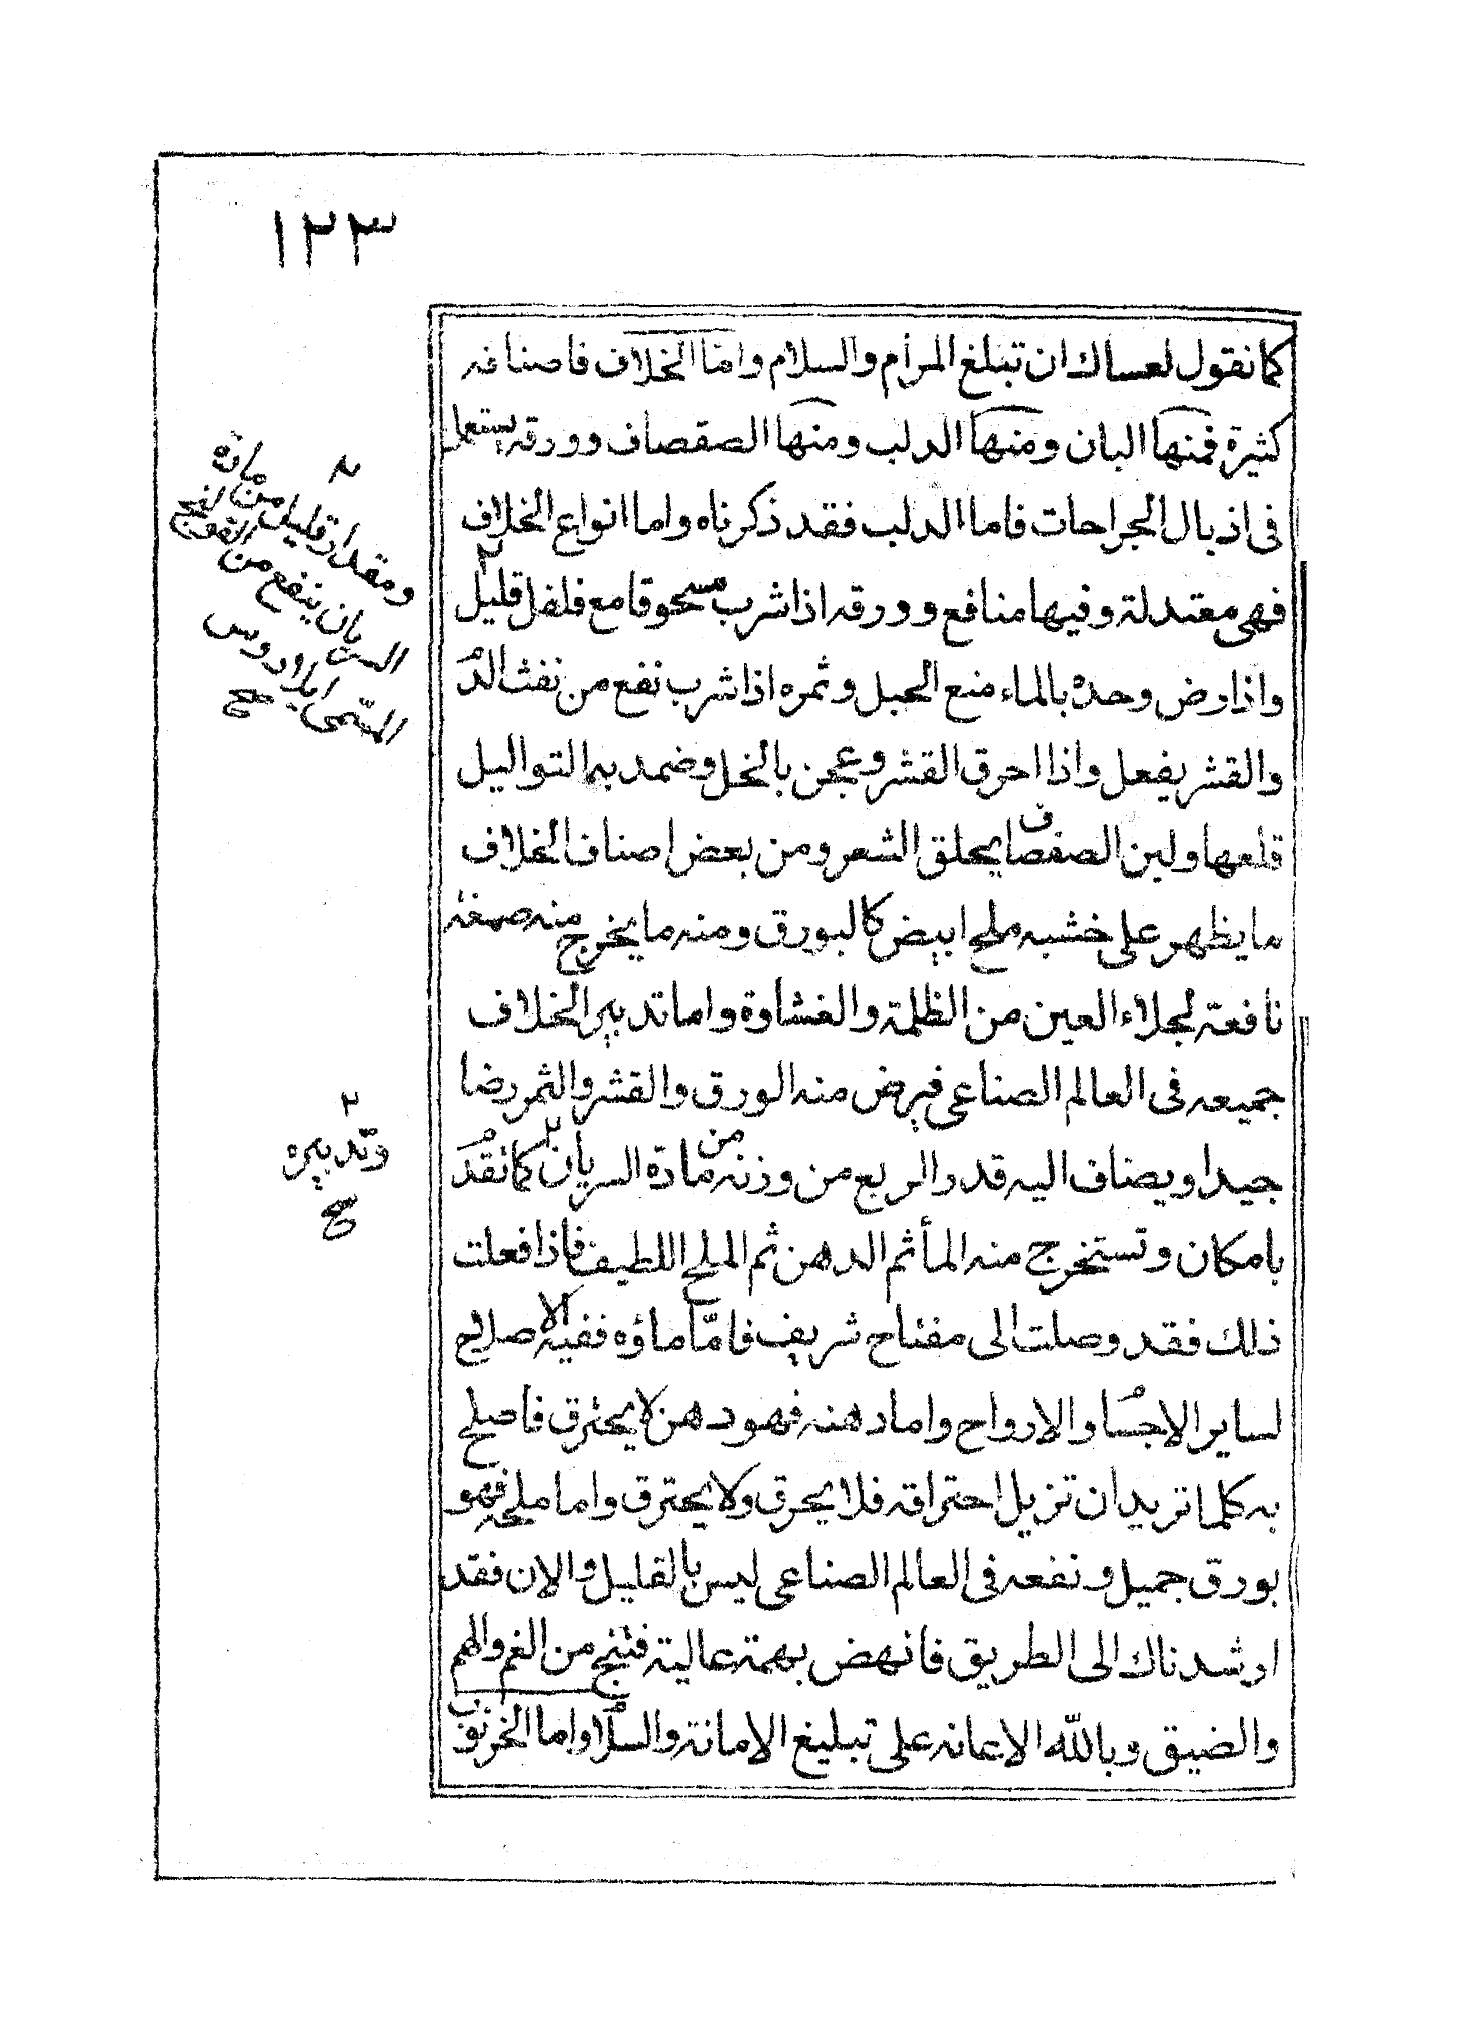 ١٢٣
كما نقول لعساك ان تبلغ المرام والسلام واما الخلاف فاصنافه
كثيرة فمنها البان ومنها الدلب ومنها الصفصاف وورقه يستعمل
فى اذبال الجراحات فاما الدلب فقد ذكرناه واما انواع الخلاف
فهى معتدلة وفيها منافع وورقه اذا شرب مسحوقا مع فلفل قليل ٢
واذا رض وحده بالماء منع الحبل وثمره اذا شرب نفع من نفث الدم
والقشر يفعل واذا احرق القشر وعجن بالخل وضمد به التواليل
قلعها ولبن الصفصاف يحلق الشعر ومن بعض اصناف الخلاف
ما يظهر على خشبه ملح ابيض كالبورق ومنه ما يخرج منه صمغة
نافعة لجلاء العين من الظلمة والغشاوة واما تدبير الخلاف
جميعه فى العالم الصناعى فيرض منه الورق والقشر والثمر رضا
جيدا ويضاف اليه قدر الربع من وزنه من مادة السريان ٢ كما نقدم
بامكان وتستخرج منه المأ ثم الدهن ثم الملح اللطيف فاذا فعلت
ذلك فقد وصلت الى مفتاح شريف فامّا ماؤه ففيه الاصلاح
لساير الاجسام والارواح واما دهنه فهو دهن لا يحترق فاصلح
به كلما تريد ان تزيل احتراقه فلا يحرق ولا يحترق واما ملحه فهو
بورق جميل ونفعه فى العالم الصناعى ليس بالقليل والان فقد
ارشدناك الى الطريق فانهض بهمة عالية فتنج من الغم والهم
والضيق وبالله الاعانه على تبليغ الامانة والسلام واما الخرنوب
٢
ومقدار قليل من مادة
السريان ينفع من القولنج
المسمى ايلاوروس
صح
٢
وتدبيره
صح